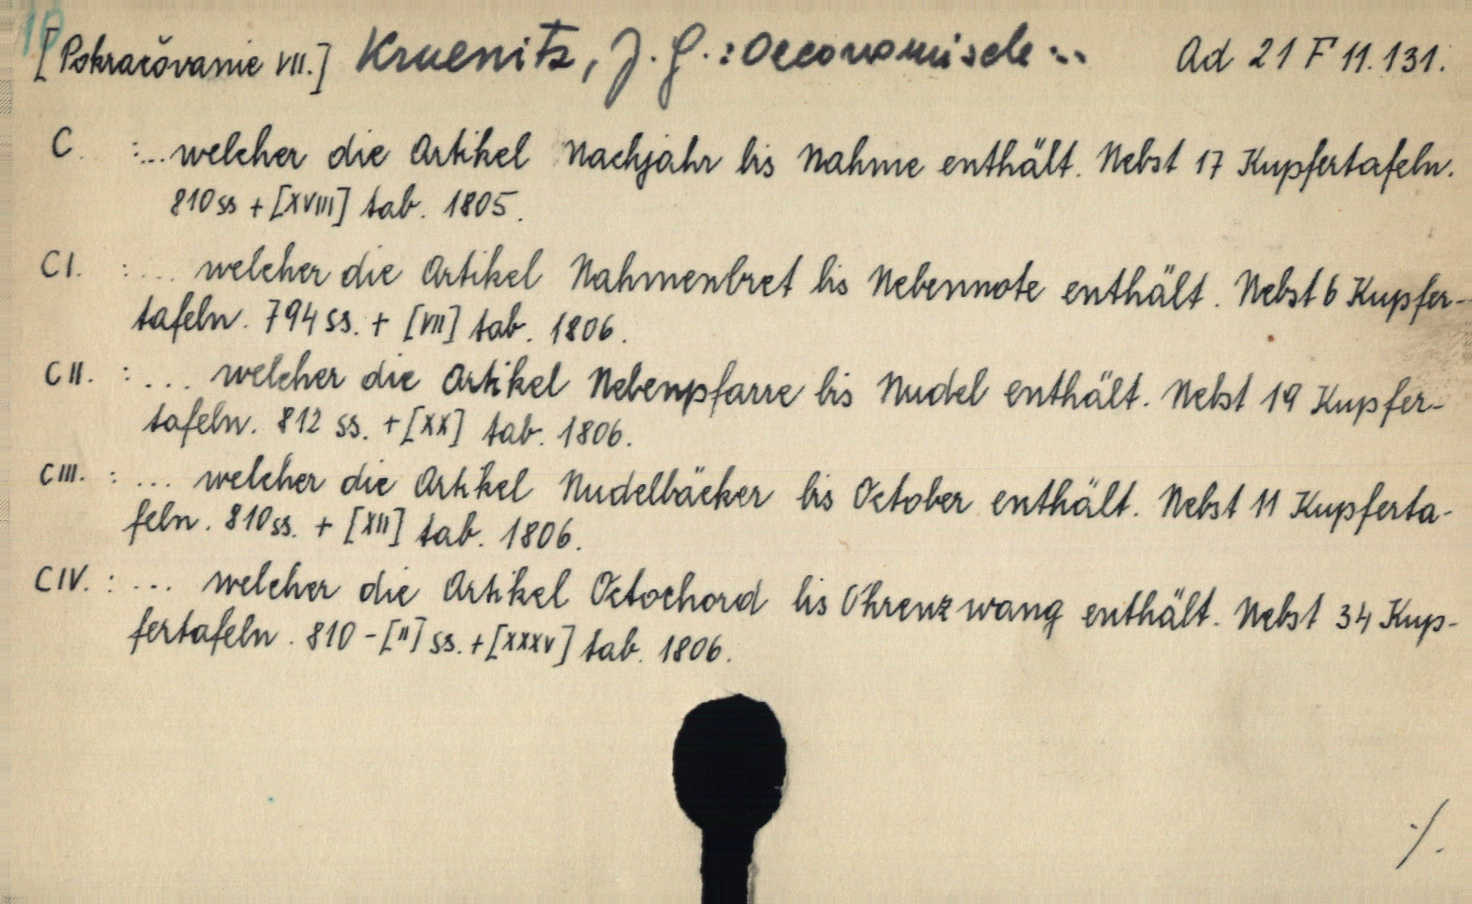 10
[Pokračovanie VII.] Kruenitz, J. G.: Oeconomische... Ad 21 F 11.131.
C. :... welcher die Artikel Nachjahr bis Nahme enthält. Nebst 17 Kupfertafeln.
810 ss + [XVIII] tab. 1805.
CI. : ... welcher die Artikel Nahmenbret bis Nebennote enthält. Nebst 6 Kupfer-
tafeln. 794 ss. + [VII] tab. 1806.
CII. : ... welcher die Artikel Nebenpfarre bis Nudel enthält. Nebst 19 Kupfer-
tafeln. 812 ss. + [XX] tab. 1806.
CIII. : ... welcher die Artikel Nudelbäcker bis October enthält. Nebst 11 Kupferta-
feln. 810 ss. + [XII] tab. 1806.
CIV. : ... welcher die Artikel Octochord bis Ohrenzwang enthält. Nebst 34 Kup-
fertafeln. 810 - [II] ss. + [XXXV] tab. 1806.
./.